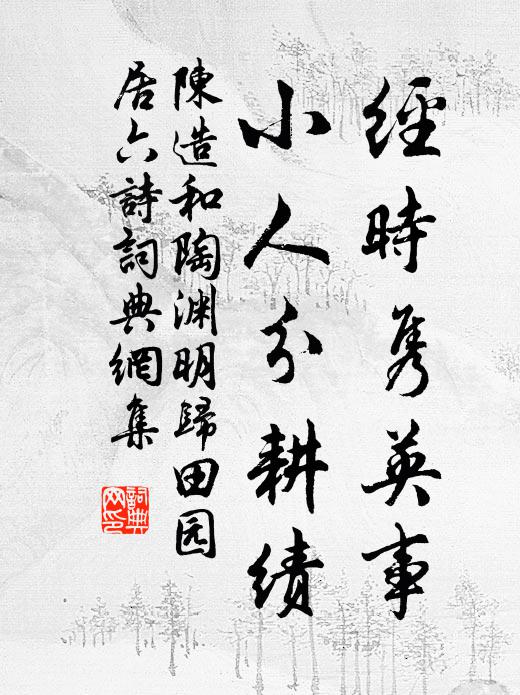 經時隽英事
小人分耕績
陳造和陶淵明歸田园
居六詩詞典網集
詞典
网印